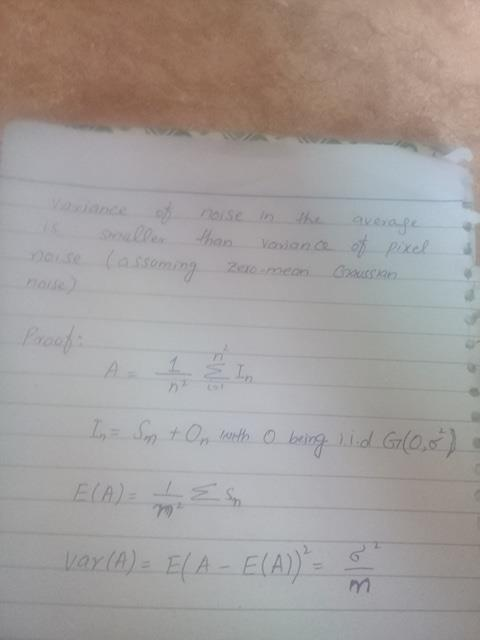 variance of noise in the average
is smaller than variance of pixel
noise (assuming zero-mean Gaussian
noise)
Proof:
A = 1/n² Σ_{i=1}^{n²} I_n
I_n = S_m + O_n with O being i.i.d G(0,σ²)
E(A) = 1/m² Σ S_n
var(A) = E(A - E(A))² = σ²/m